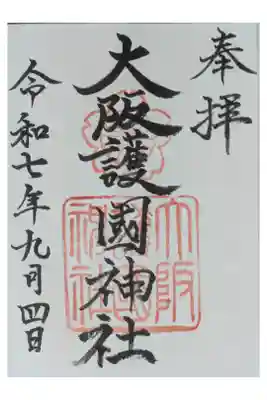 奉拝
大阪護國神社
令和七年九月四日